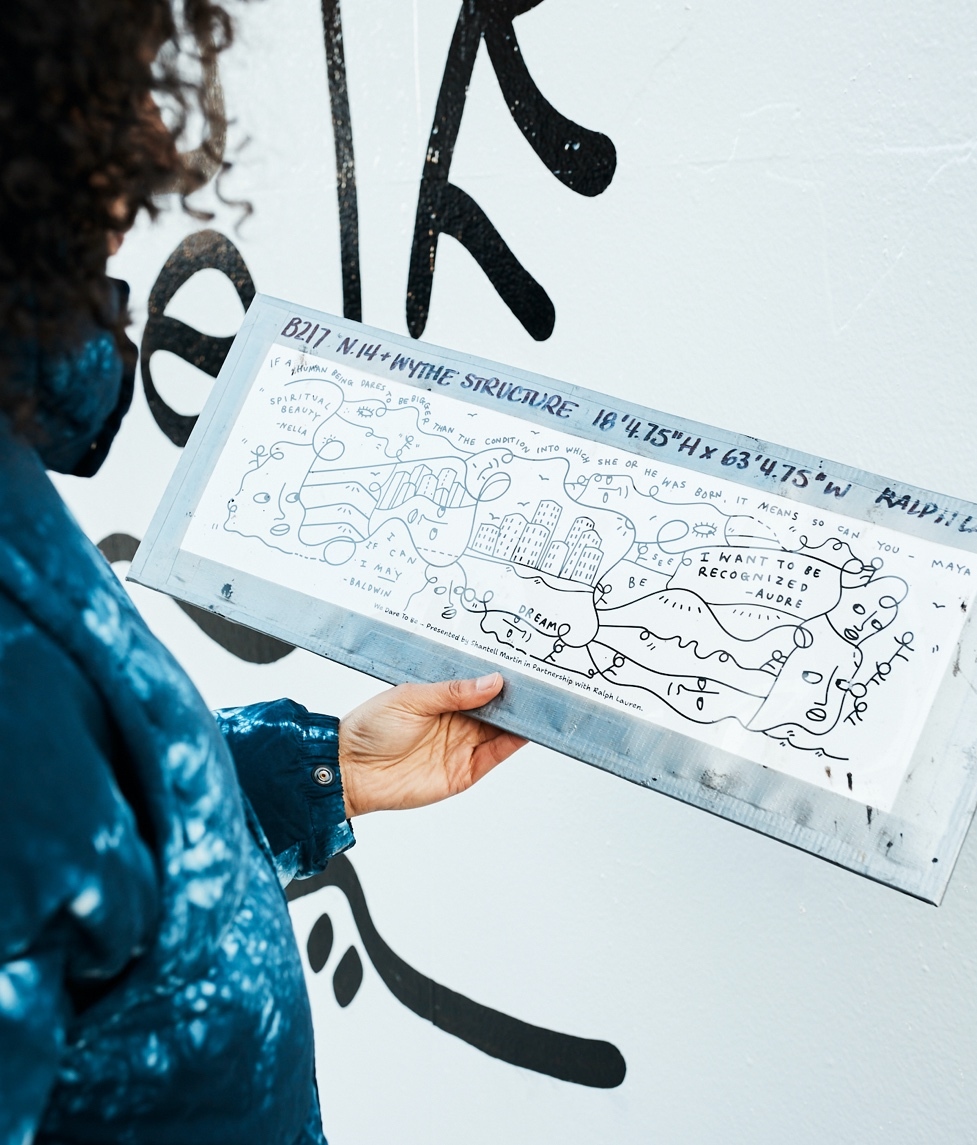 B217 N.14 + WYTHE STRUCTURE 18'4.75"H x 63'4.75"W RALPH L
IF A HUMAN BEING DARES TO BE BIGGER THAN THE CONDITION INTO WHICH SHE OR HE WAS BORN, IT MEANS SO CAN YOU - MAYA
"SPIRITUAL
BEAUTY"
-NELLA
I
CAN
IF I MAY
-BALDWIN
SEE
BE
I WANT TO BE
RECOGNIZED
-AUDRE
DREAM
We Dare To Be - Presented by Shantell Martin in Partnership with Ralph Lauren.